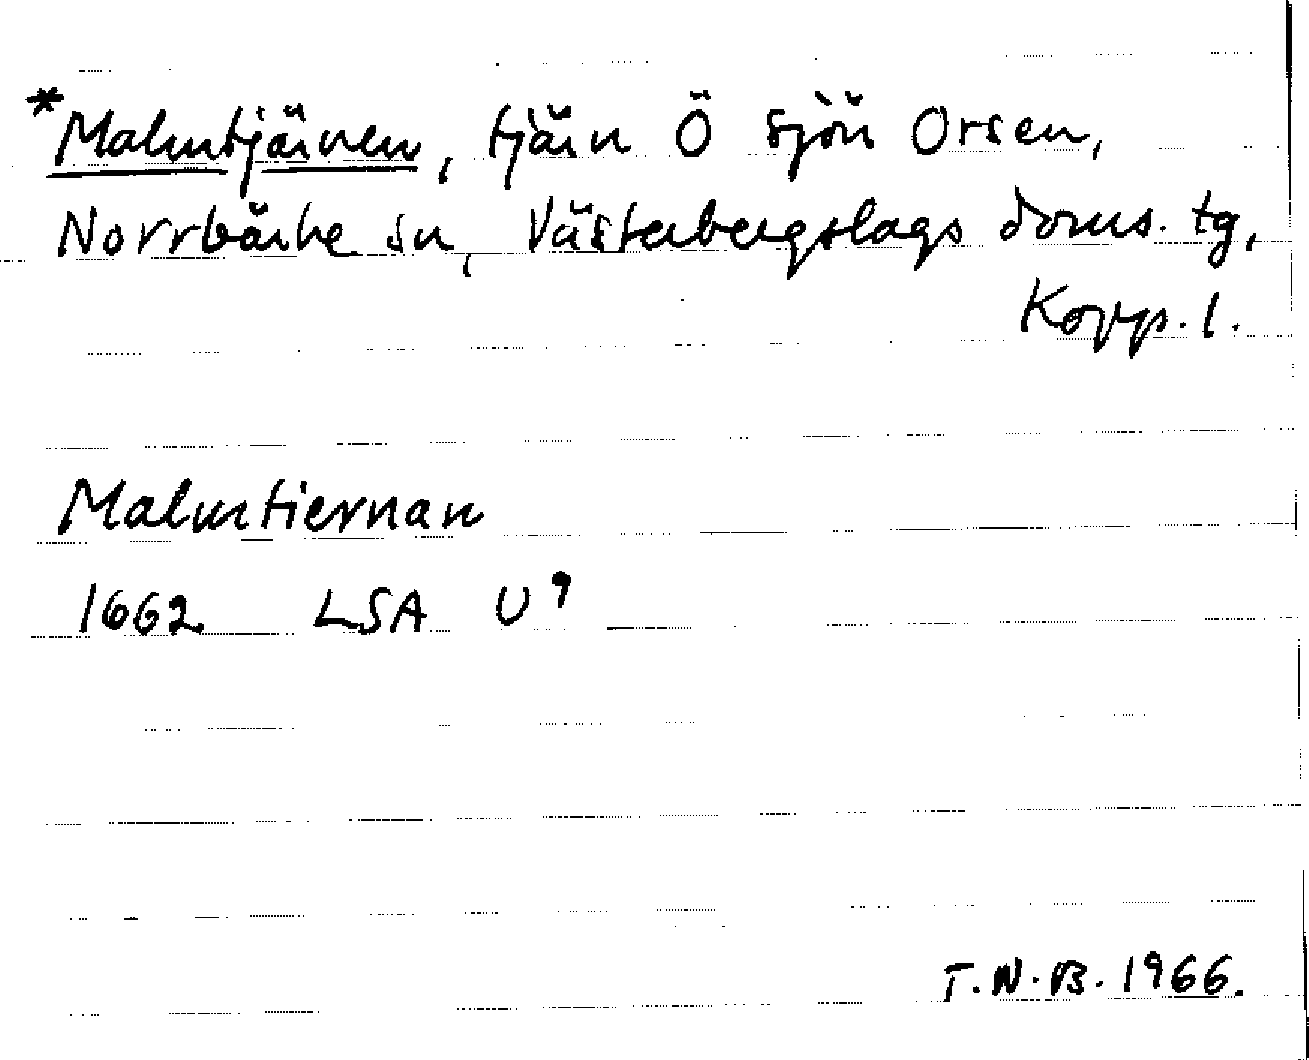 *Malmtjärnen, tjärn Ö sjön Orsen,
Norrbärke sn, Västerbergslags doms. tg,
Kopp. l.
Malmtiernan
1662 LSA U⁹
T.N.B. 1966.